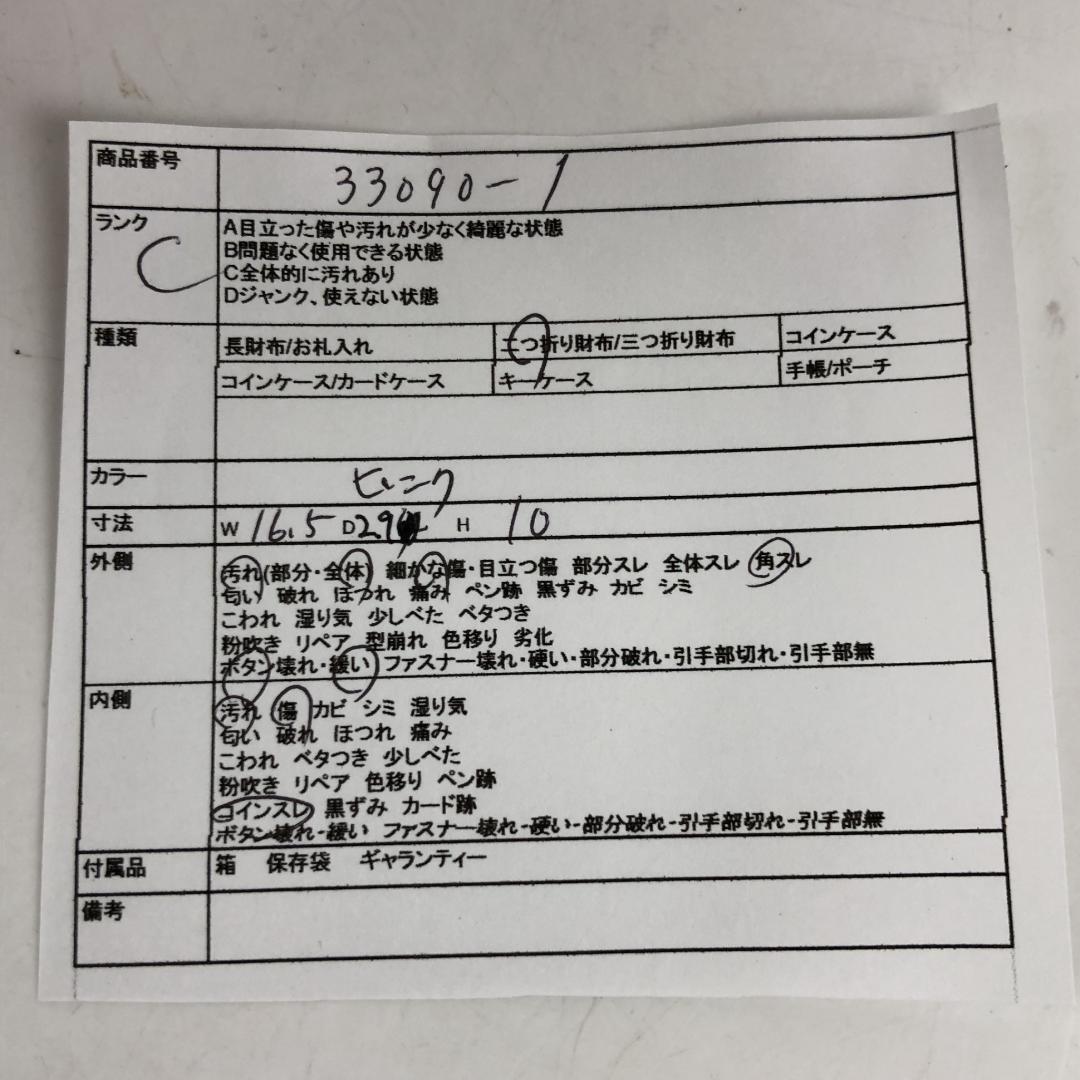 商品番号 33090-1
ランク C
A目立った傷や汚れが少なく綺麗な状態
B問題なく使用できる状態
C全体的に汚れあり
Dジャンク、使えない状態
種類 長財布/お札入れ 二つ折り財布/三つ折り財布 コインケース
コインケース/カードケース キーケース 手帳/ポーチ
カラー ピンク
寸法 W 16.5 D 2.9 H 10
外側 汚れ(部分・全体) 細かな傷・目立つ傷 部分スレ 全体スレ 角スレ
匂い 破れ ほつれ 痛み ペン跡 黒ずみ カビ シミ
こわれ 湿り気 少しべた ベタつき
粉吹き リペア 型崩れ 色移り 劣化
ボタン壊れ・緩い ファスナー壊れ・硬い・部分破れ・引手部切れ・引手部無
内側 汚れ 傷 カビ シミ 湿り気
匂い 破れ ほつれ 痛み
こわれ ベタつき 少しべた
粉吹き リペア 色移り ペン跡
コインスレ 黒ずみ カード跡
ボタン壊れ-緩い ファスナー壊れ-硬い-部分破れ-引手部切れ-引手部無
付属品 箱 保存袋 ギャランティー
備考